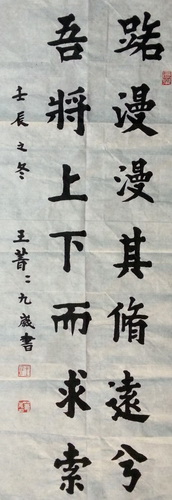 路漫漫其脩遠兮
吾將上下而求索
壬辰之冬 王菁二九歲書